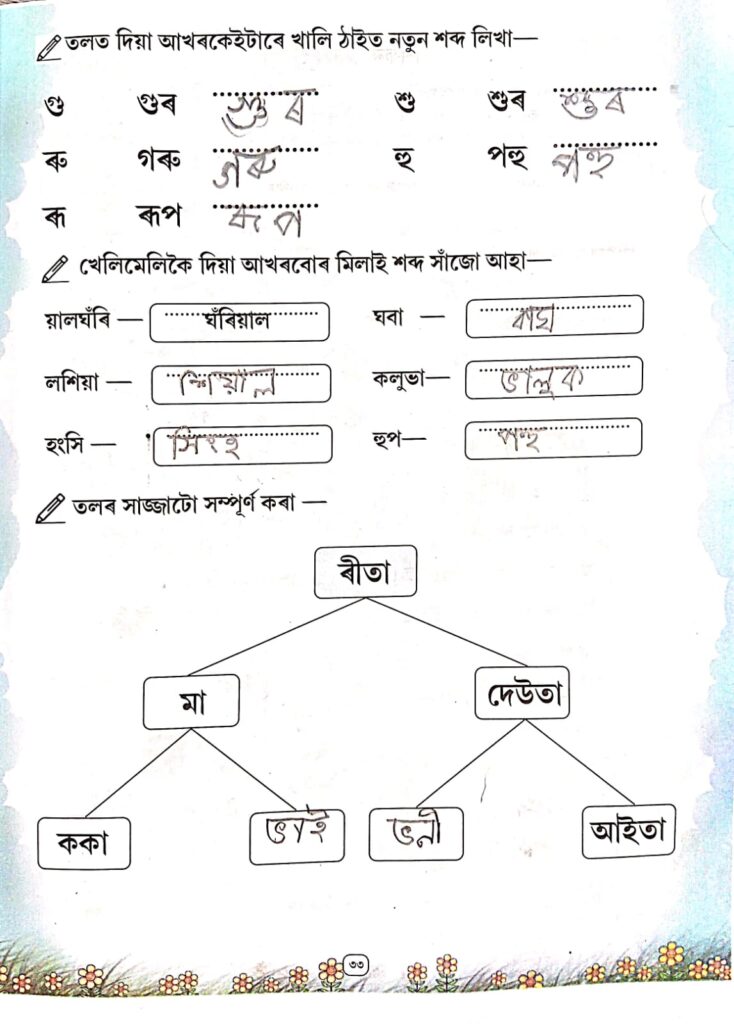 তলত দিয়া আখৰকেইটাৰে খালি ঠাইত নতুন শব্দ লিখা—
গু গুৰ গুৰ শু শুৰ শুৰ
ৰু গৰু গৰু হু পহু পহু
ৰূ ৰূপ ৰূপ
খেলিমেলিকৈ দিয়া আখৰবোৰ মিলাই শব্দ সাঁজো আহা—
য়ালঘঁৰি — ঘঁৰিয়াল ঘবা — বাঘ
লশিয়া — শিয়াল কলুভা— ভালুক
হংসি — সিংহ হুপ— পহু
তলৰ সাজ্জাটো সম্পূৰ্ণ কৰা —
ৰীতা
মা দেউতা
ককা ভাই ভনী আইতা
৩৩